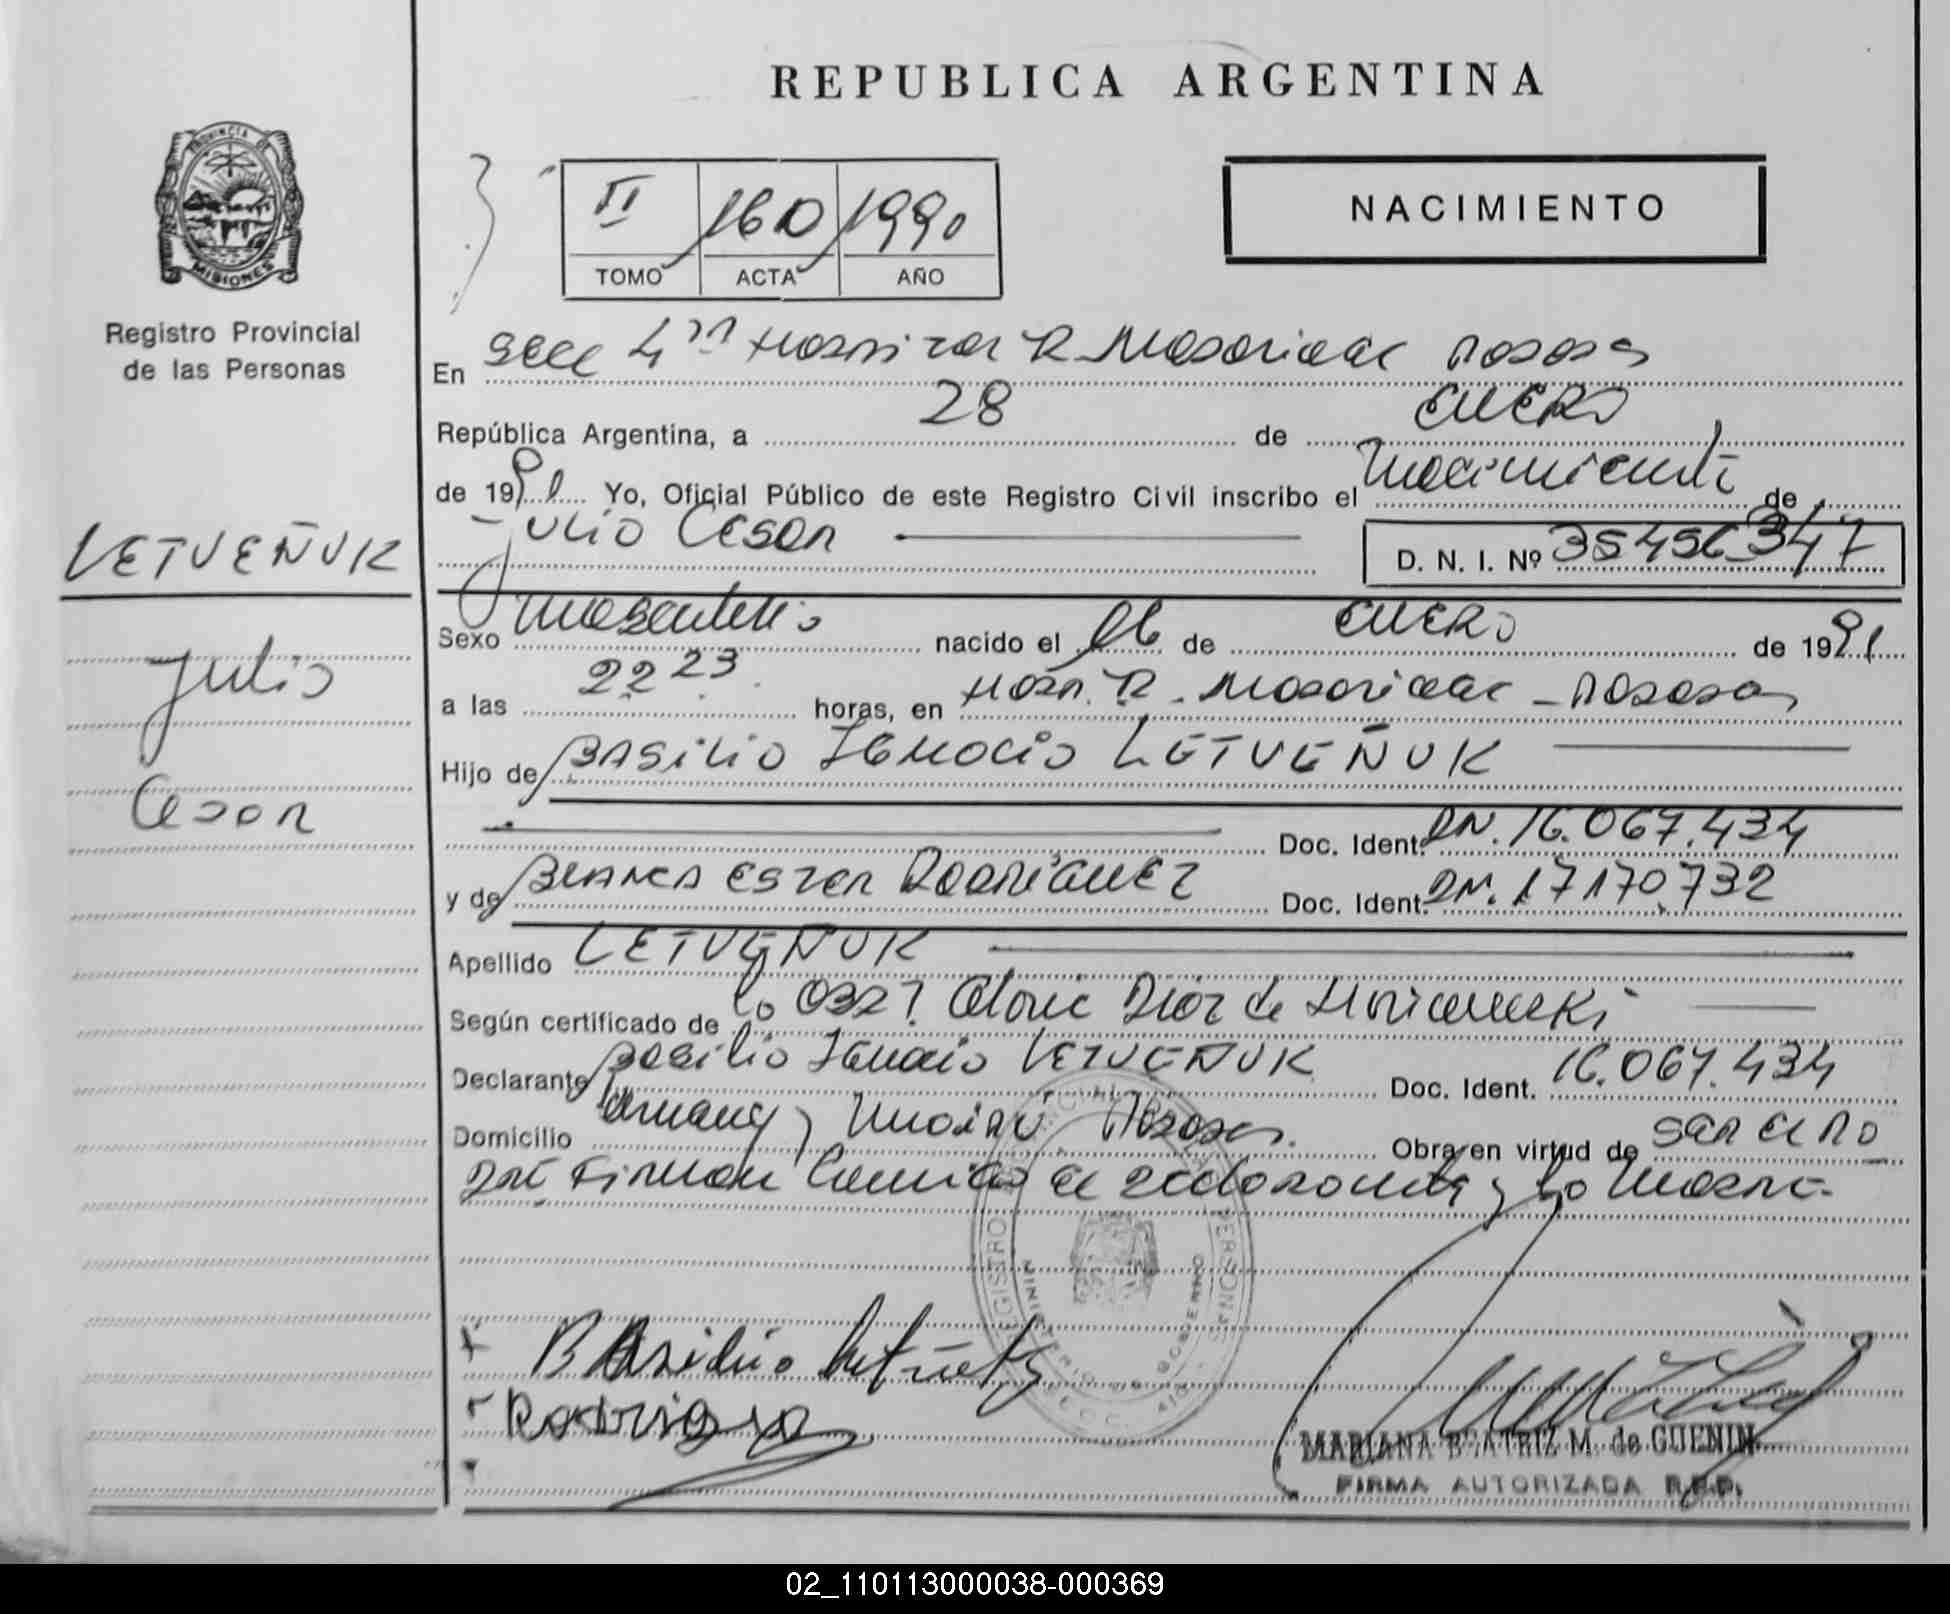 REPUBLICA ARGENTINA
PROVINCIA DE
MISIONES
Registro Provincial
de las Personas
II 160 1990
TOMO ACTA AÑO
NACIMIENTO
LETVEÑUK
Julio
Cesar
En Secc 4ta Hospital R. Madariaga Posadas
República Argentina, a 28 de ENERO
de 1991 Yo, Oficial Público de este Registro Civil inscribo el Nacimiento de
Julio Cesar D. N. I. Nº 35456347
Sexo Masculino nacido el 06 de ENERO de 1991
a las 22 23 horas, en Hosp. R. Madariaga - Posadas
Hijo de BASILIO IGNACIO LETVEÑUK
Doc. Ident. DN. 16.067.434
y de BLANCA ESTER RODRIGUEZ Doc. Ident. DN. 17170.732
Apellido LETVEÑUK
Según certificado de la Obst. Gloria Diaz de
Declarante Basilio Ignacio LETVEÑUK Doc. Ident. 16.067.434
Domicilio y Posadas. Obra en virtud de ser el pa
dre Firman el declarante y la Madre.
REGISTRO PROVINCIAL DE LAS PERSONAS
MINISTERIO DE GOBIERNO
Basilio
Rodriguez
MARIANA BEATRIZ M. de GUENIN
FIRMA AUTORIZADA R.P.P.
02_110113000038-000369